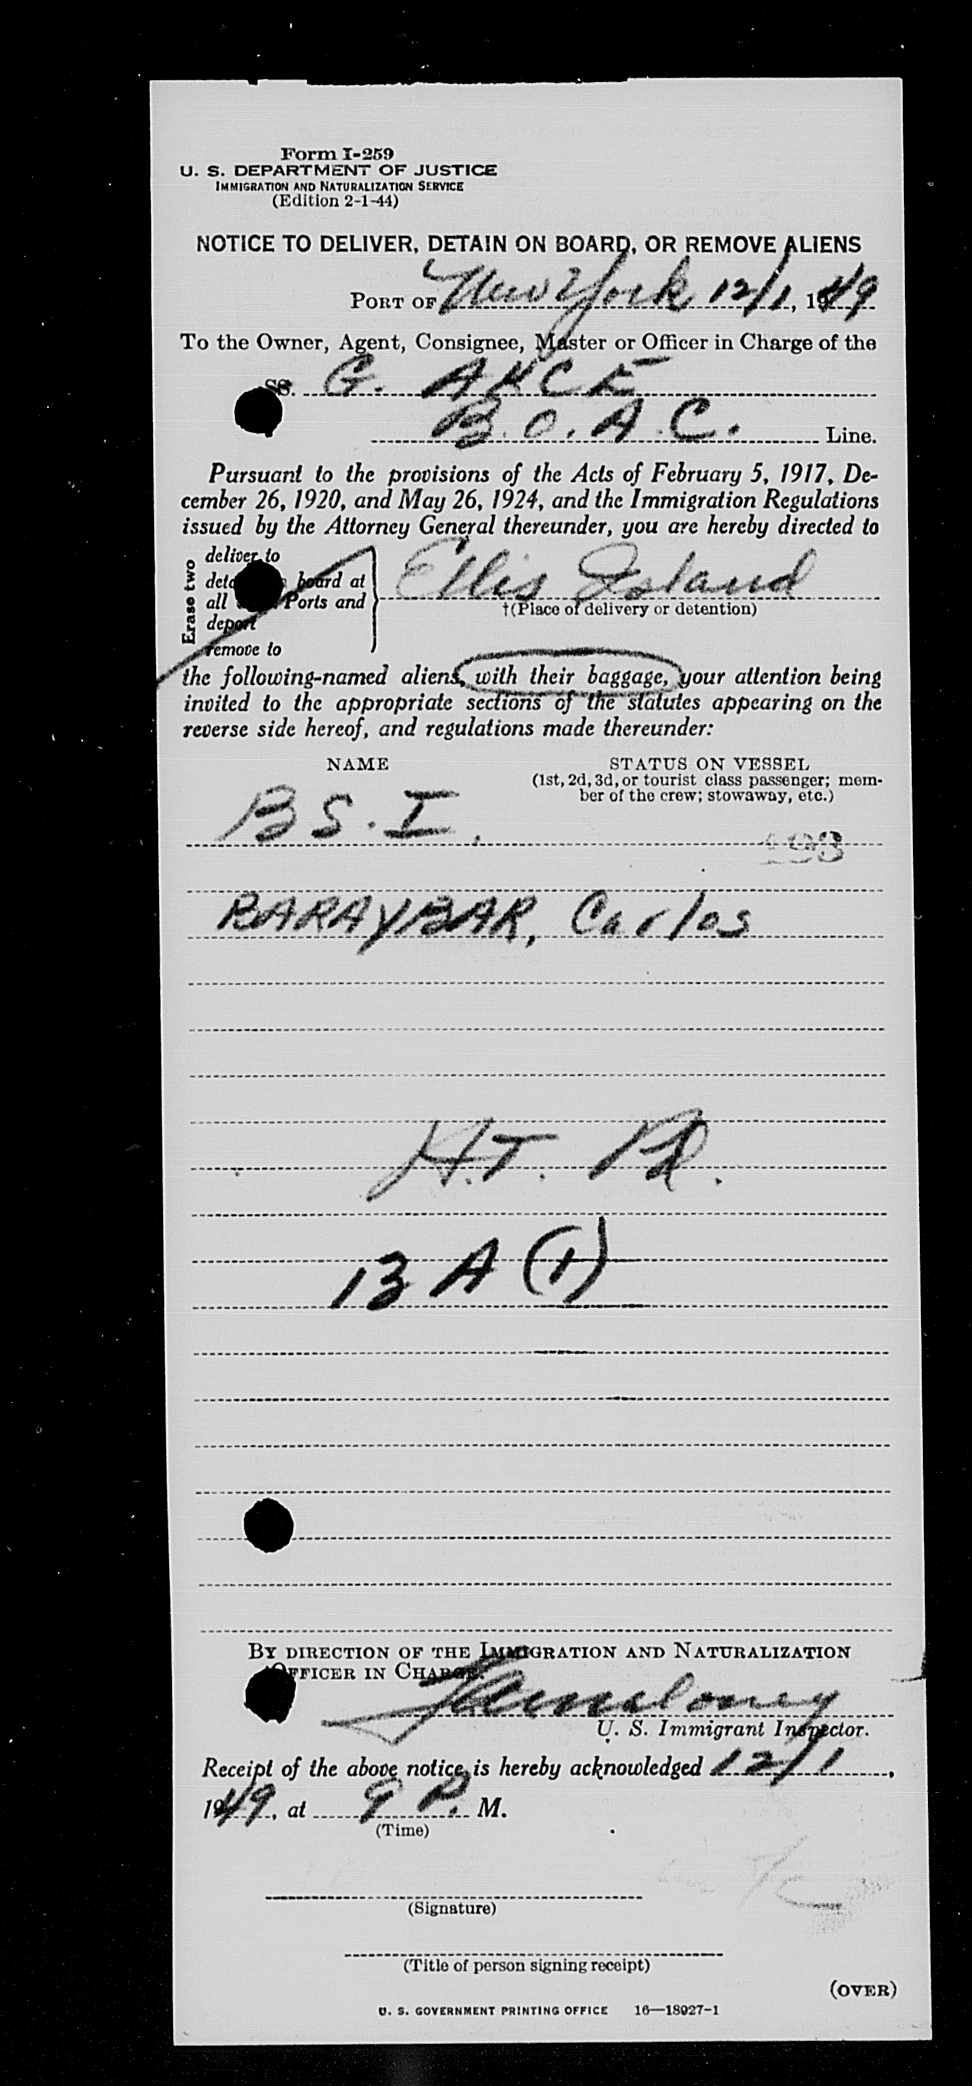 Form I-259
U. S. DEPARTMENT OF JUSTICE
IMMIGRATION AND NATURALIZATION SERVICE
(Edition 2-1-44)
NOTICE TO DELIVER, DETAIN ON BOARD, OR REMOVE ALIENS
PORT OF New York 12/1, 1949
To the Owner, Agent, Consignee, Master or Officer in Charge of the
SS. G. AKCE
B.O.A.C. Line.
Pursuant to the provisions of the Acts of February 5, 1917, De-
cember 26, 1920, and May 26, 1924, and the Immigration Regulations
issued by the Attorney General thereunder, you are hereby directed to
Erase two
deliver to
board at
all Ports and
deport
remove to
Ellis Island
†(Place of delivery or detention)
the following-named aliens, with their baggage, your attention being
invited to the appropriate sections of the statutes appearing on the
reverse side hereof, and regulations made thereunder:
NAME
STATUS ON VESSEL
(1st, 2d, 3d, or tourist class passenger; mem-
ber of the crew; stowaway, etc.)
B S. I.
193
BARAYBAR, Carlos
H.T.
13 A (1)
BY DIRECTION OF THE IMMIGRATION AND NATURALIZATION
OFFICER IN CHARGE.
U. S. Immigrant Inspector.
Receipt of the above notice is hereby acknowledged 12/1,
1949, at 9 P. M.
(Time)
(Signature)
(Title of person signing receipt)
(OVER)
U. S. GOVERNMENT PRINTING OFFICE 16—18027-1